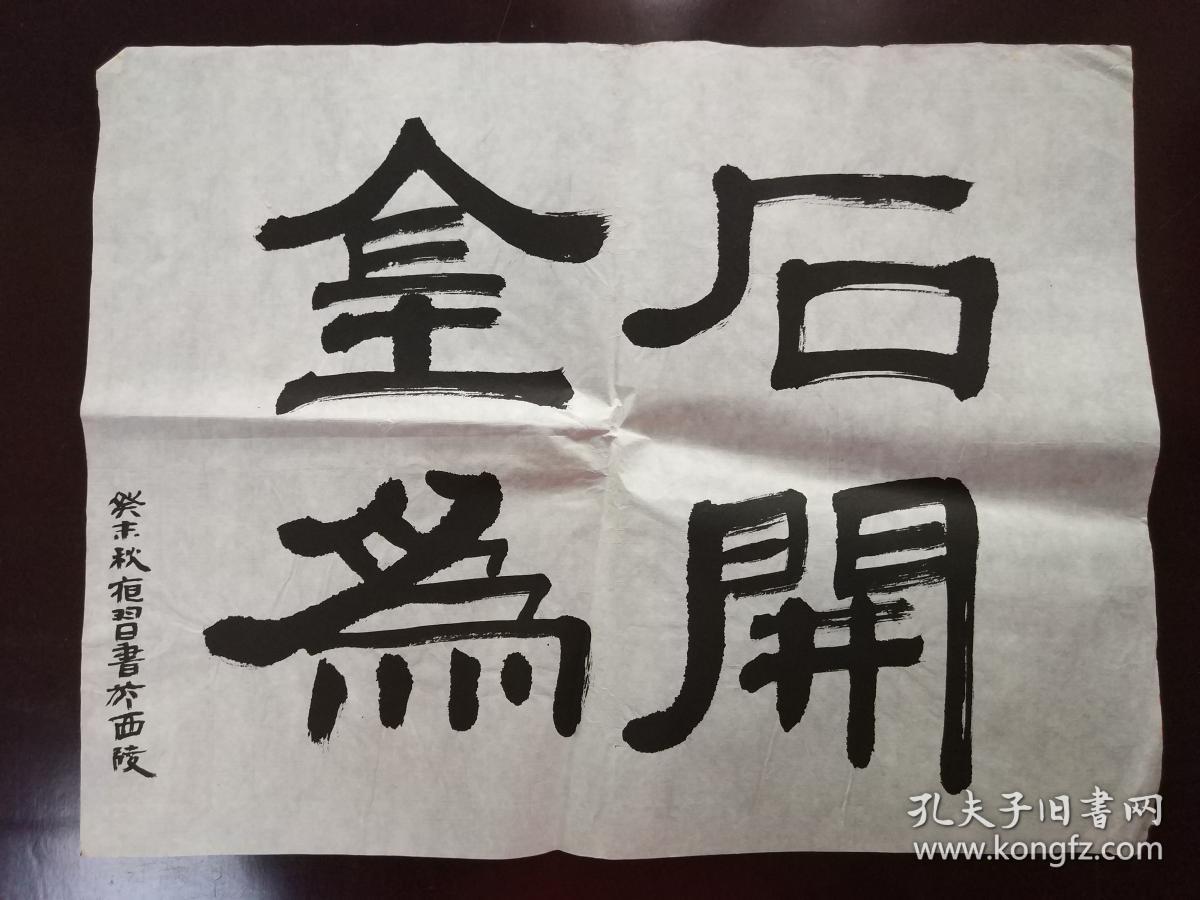 金石
為開
癸未秋夜習書於西陵
孔夫子旧書网
www.kongfz.com